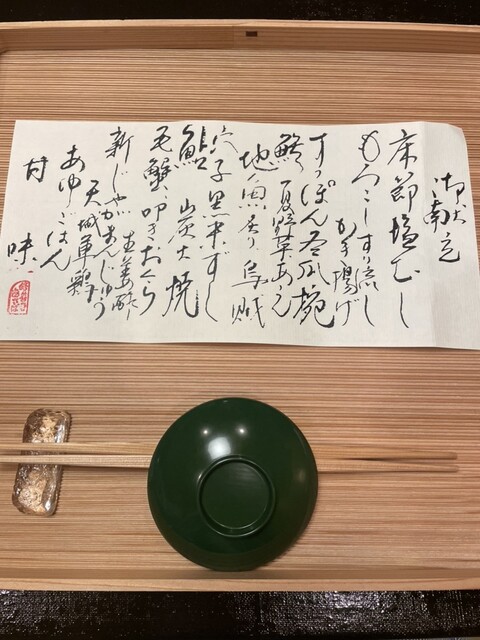 御献立
床節塩むし
もろこしすり流し
かき揚げ
すっぽん冬瓜椀
地魚造り 烏賊
穴子黒米ずし
鮎 炭火焼
毛蟹 叩きおくら
生姜酢
新じゃがまんじゅう
天城軍鶏
あゆごはん
甘味